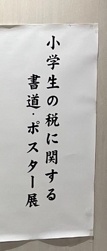 小学生の税に関する
書道・ポスター展